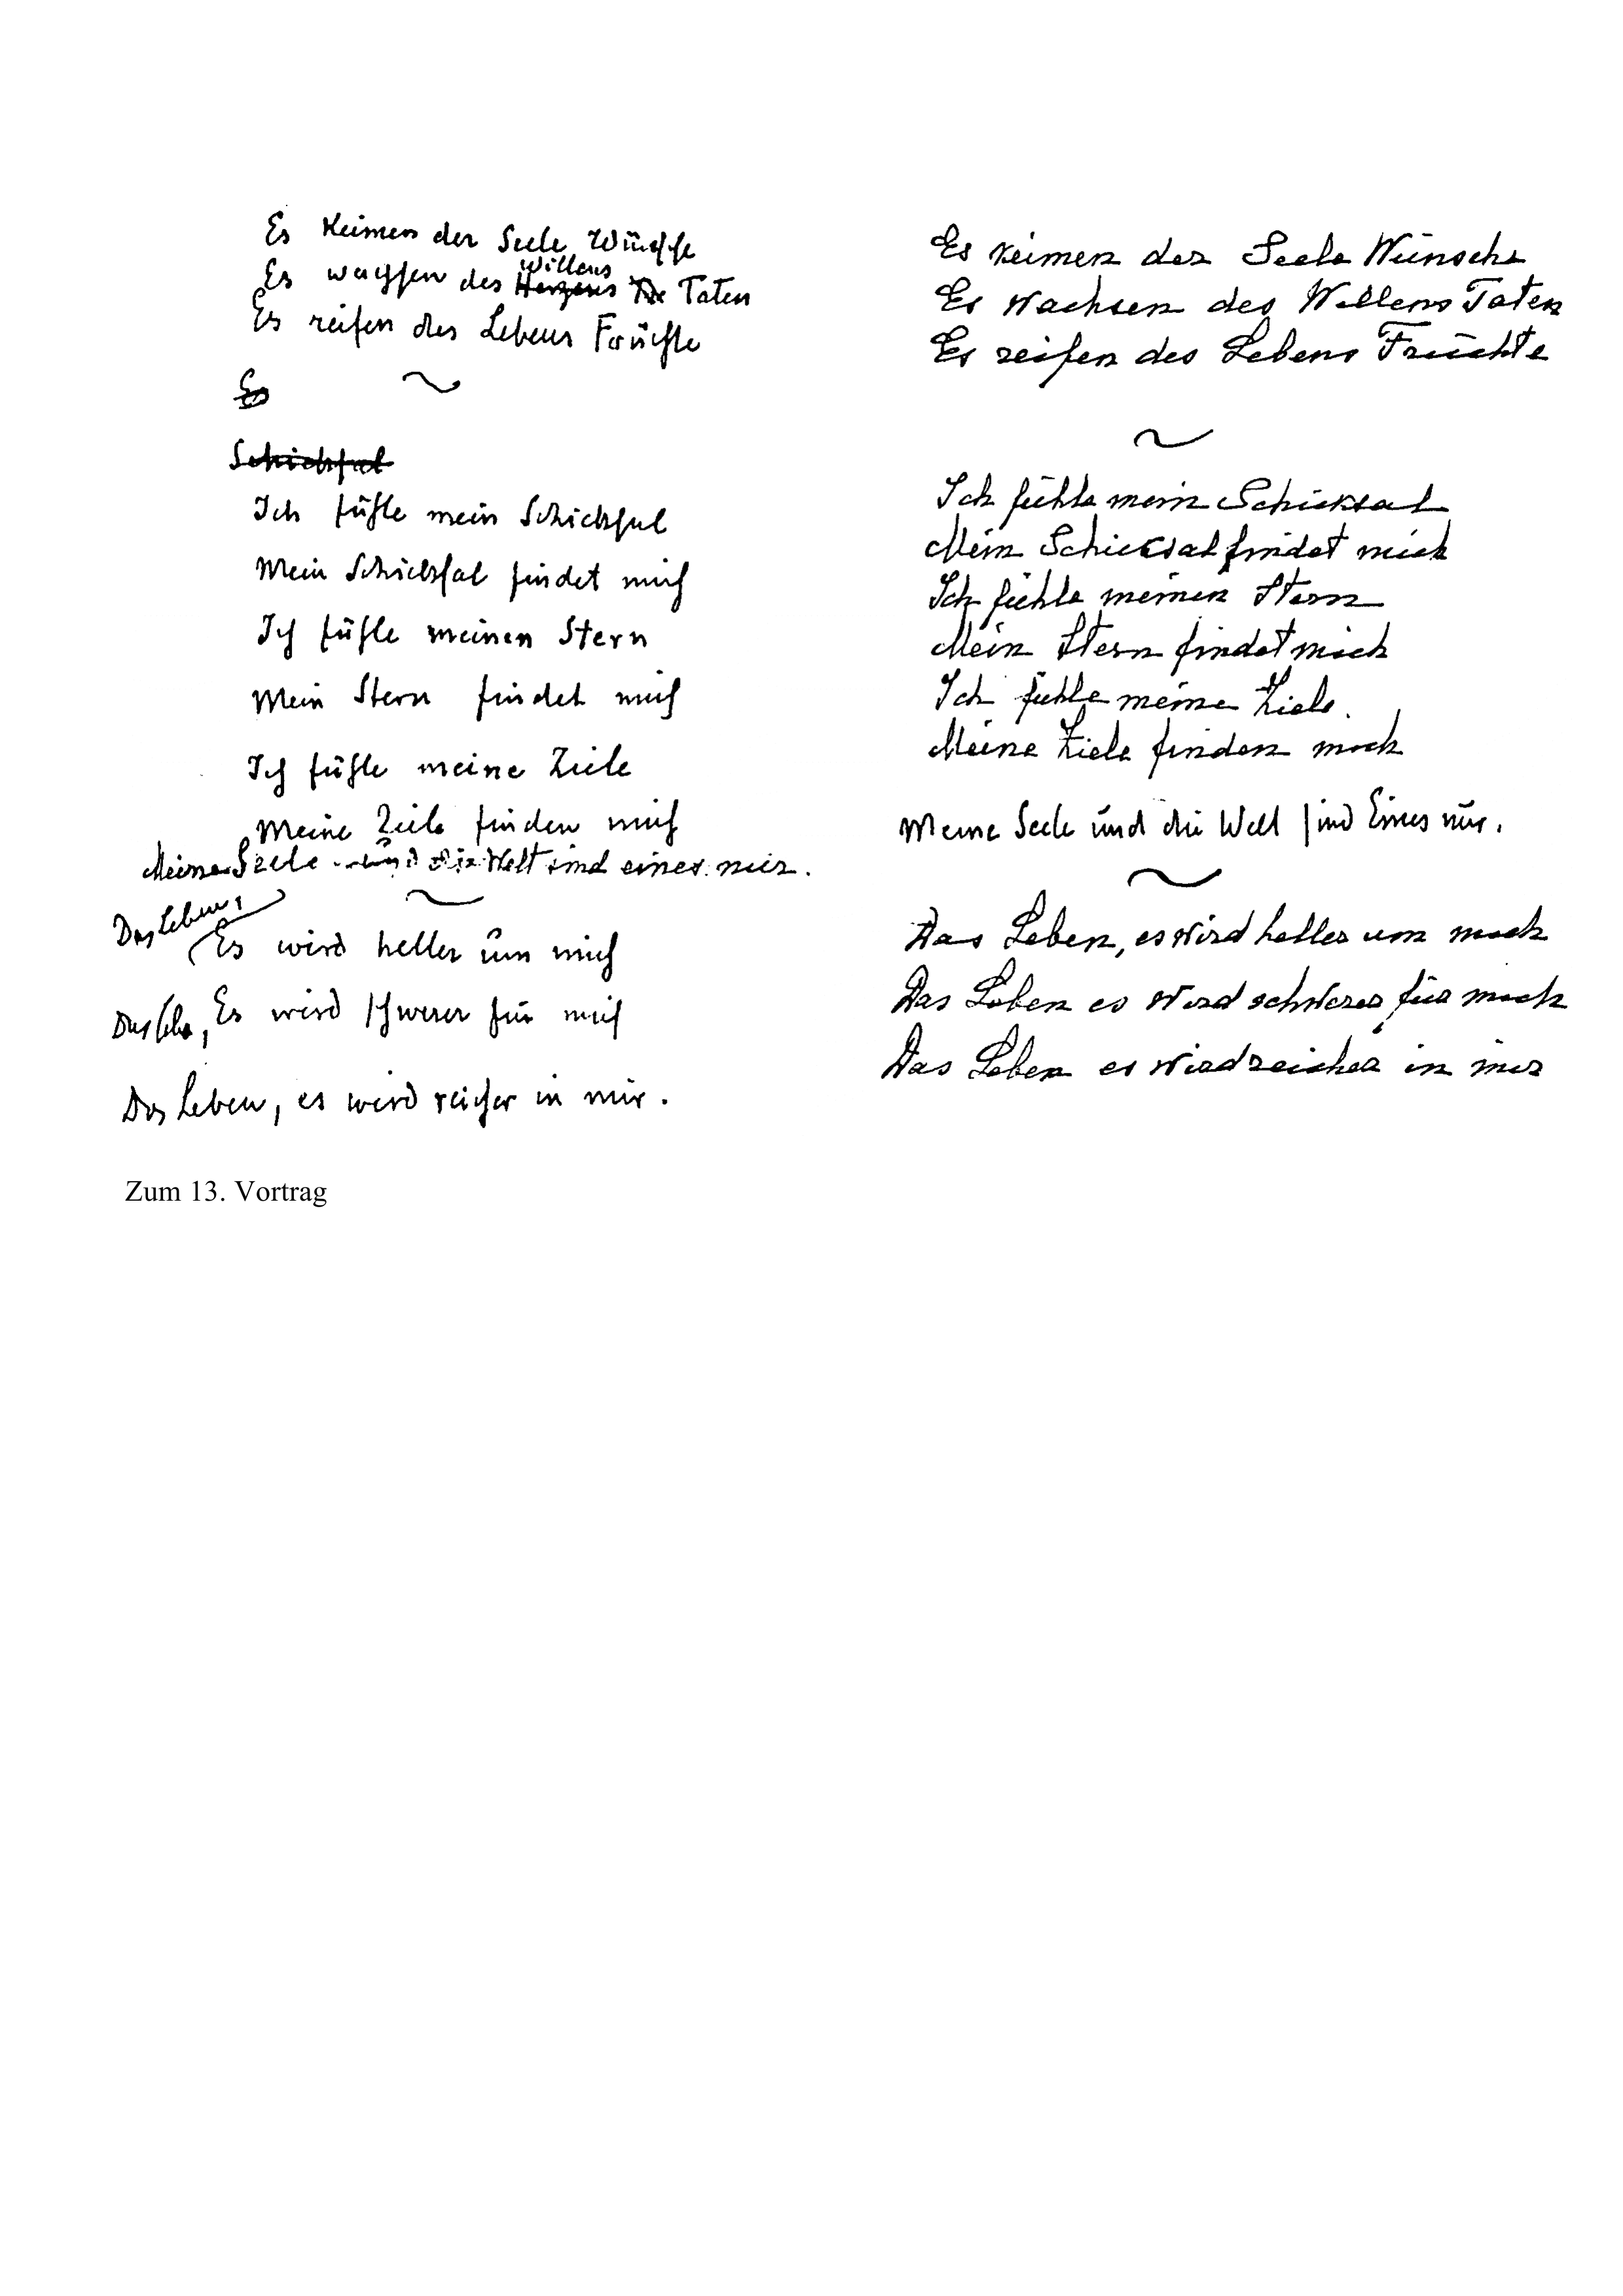 Es keimen der Seele Wünsche
Es wachsen des Willens
Herzens Taten
Es reifen des Lebens Früchte
~
Es
Schicksal
Ich fühle mein Schicksal
Mein Schicksal findet mich
Ich fühle meinen Stern
Mein Stern findet mich
Ich fühle meine Ziele
Meine Ziele finden mich
Meine Seele und die Welt sind eines nur.
~
Das Leben,
Es wird heller um mich
Das Leben, Es wird schwerer für mich
Das Leben, es wird reicher in mir.
Es keimen der Seele Wünsche
Es wachsen des Willens Taten
Es reifen des Lebens Früchte
~
Ich fühle mein Schicksal
Mein Schicksal findet mich
Ich fühle meinen Stern
Mein Stern findet mich
Ich fühle meine Ziele.
Meine Ziele finden mich
Meine Seele und die Welt sind Eines nur.
~
Das Leben, es wird heller um mich
Das Leben es wird schwerer für mich
Das Leben es wird reicher in mir
Zum 13. Vortrag